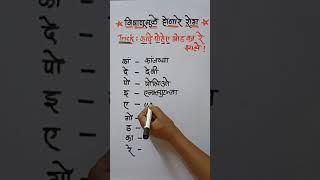 विषाणूमुळे होणारे रोग
Trick: कांदे पोहेए गोड का रे
झाले!
का - कांजण्या
दे - देवी
पो - पोलिओ
इ - इन्फ्ल्युएन्झा
ए -
गो -
ड -
का -
रे -